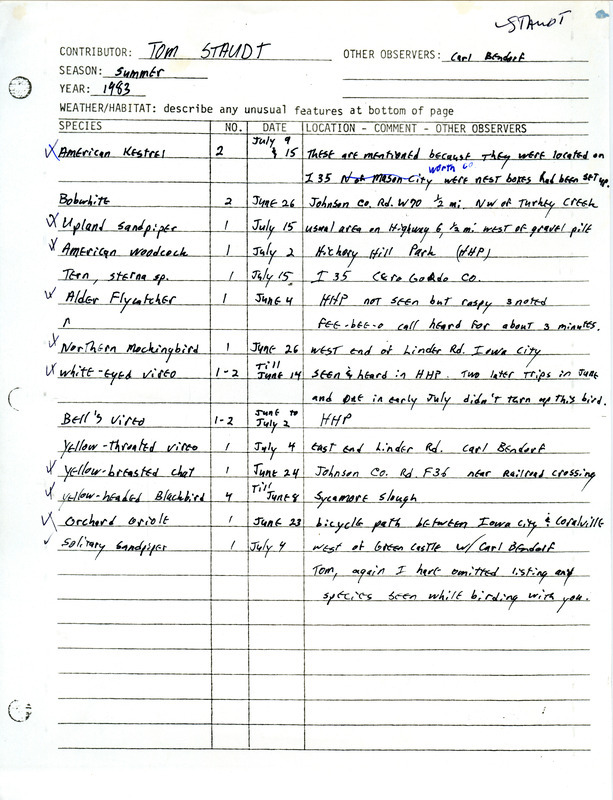 STAUDT
CONTRIBUTOR: TOM STAUDT OTHER OBSERVERS: Carl Bendorf
SEASON: Summer
YEAR: 1983
WEATHER/HABITAT: describe any unusual features at bottom of page
SPECIES NO. DATE LOCATION - COMMENT - OTHER OBSERVERS
American Kestrel 2 July 9 & 15 These are mentioned because they were located on
I 35 N of Mason City worth co were nest boxes had been set up.
Bobwhite 2 June 26 Johnson Co. Rd. W70 1/2 mi. NW of Turkey Creek
Upland Sandpiper 1 July 15 usual area on Highway 6, 1/2 mi west of gravel pit
American Woodcock 1 July 2 Hickory Hill Park (HHP)
Tern, sterna sp. 1 July 15 I 35 Cerro Gordo Co.
Alder Flycatcher 1 June 4 HHP not seen but raspy 3 noted
FEE-bee-o call heard for about 3 minutes.
Northern Mockingbird 1 June 26 west end of Linder Rd. Iowa City
White-eyed vireo 1-2 Till June 14 seen & heard in HHP. Two later trips in June
and one in early July didn't turn up this bird.
Bell's vireo 1-2 June to July 2 HHP
Yellow-throated vireo 1 July 4 east end Linder Rd. Carl Bendorf
Yellow-breasted chat 1 June 24 Johnson Co. Rd. F36 near Railroad crossing
Yellow-headed Blackbird 4 Till June 8 Sycamore Slough
Orchard oriole 1 June 23 bicycle path between Iowa City & Coralville
Solitary Sandpiper 1 July 4 west of Green Castle w/ Carl Bendorf
Tom, again I have omitted listing any
species seen while birding with you.